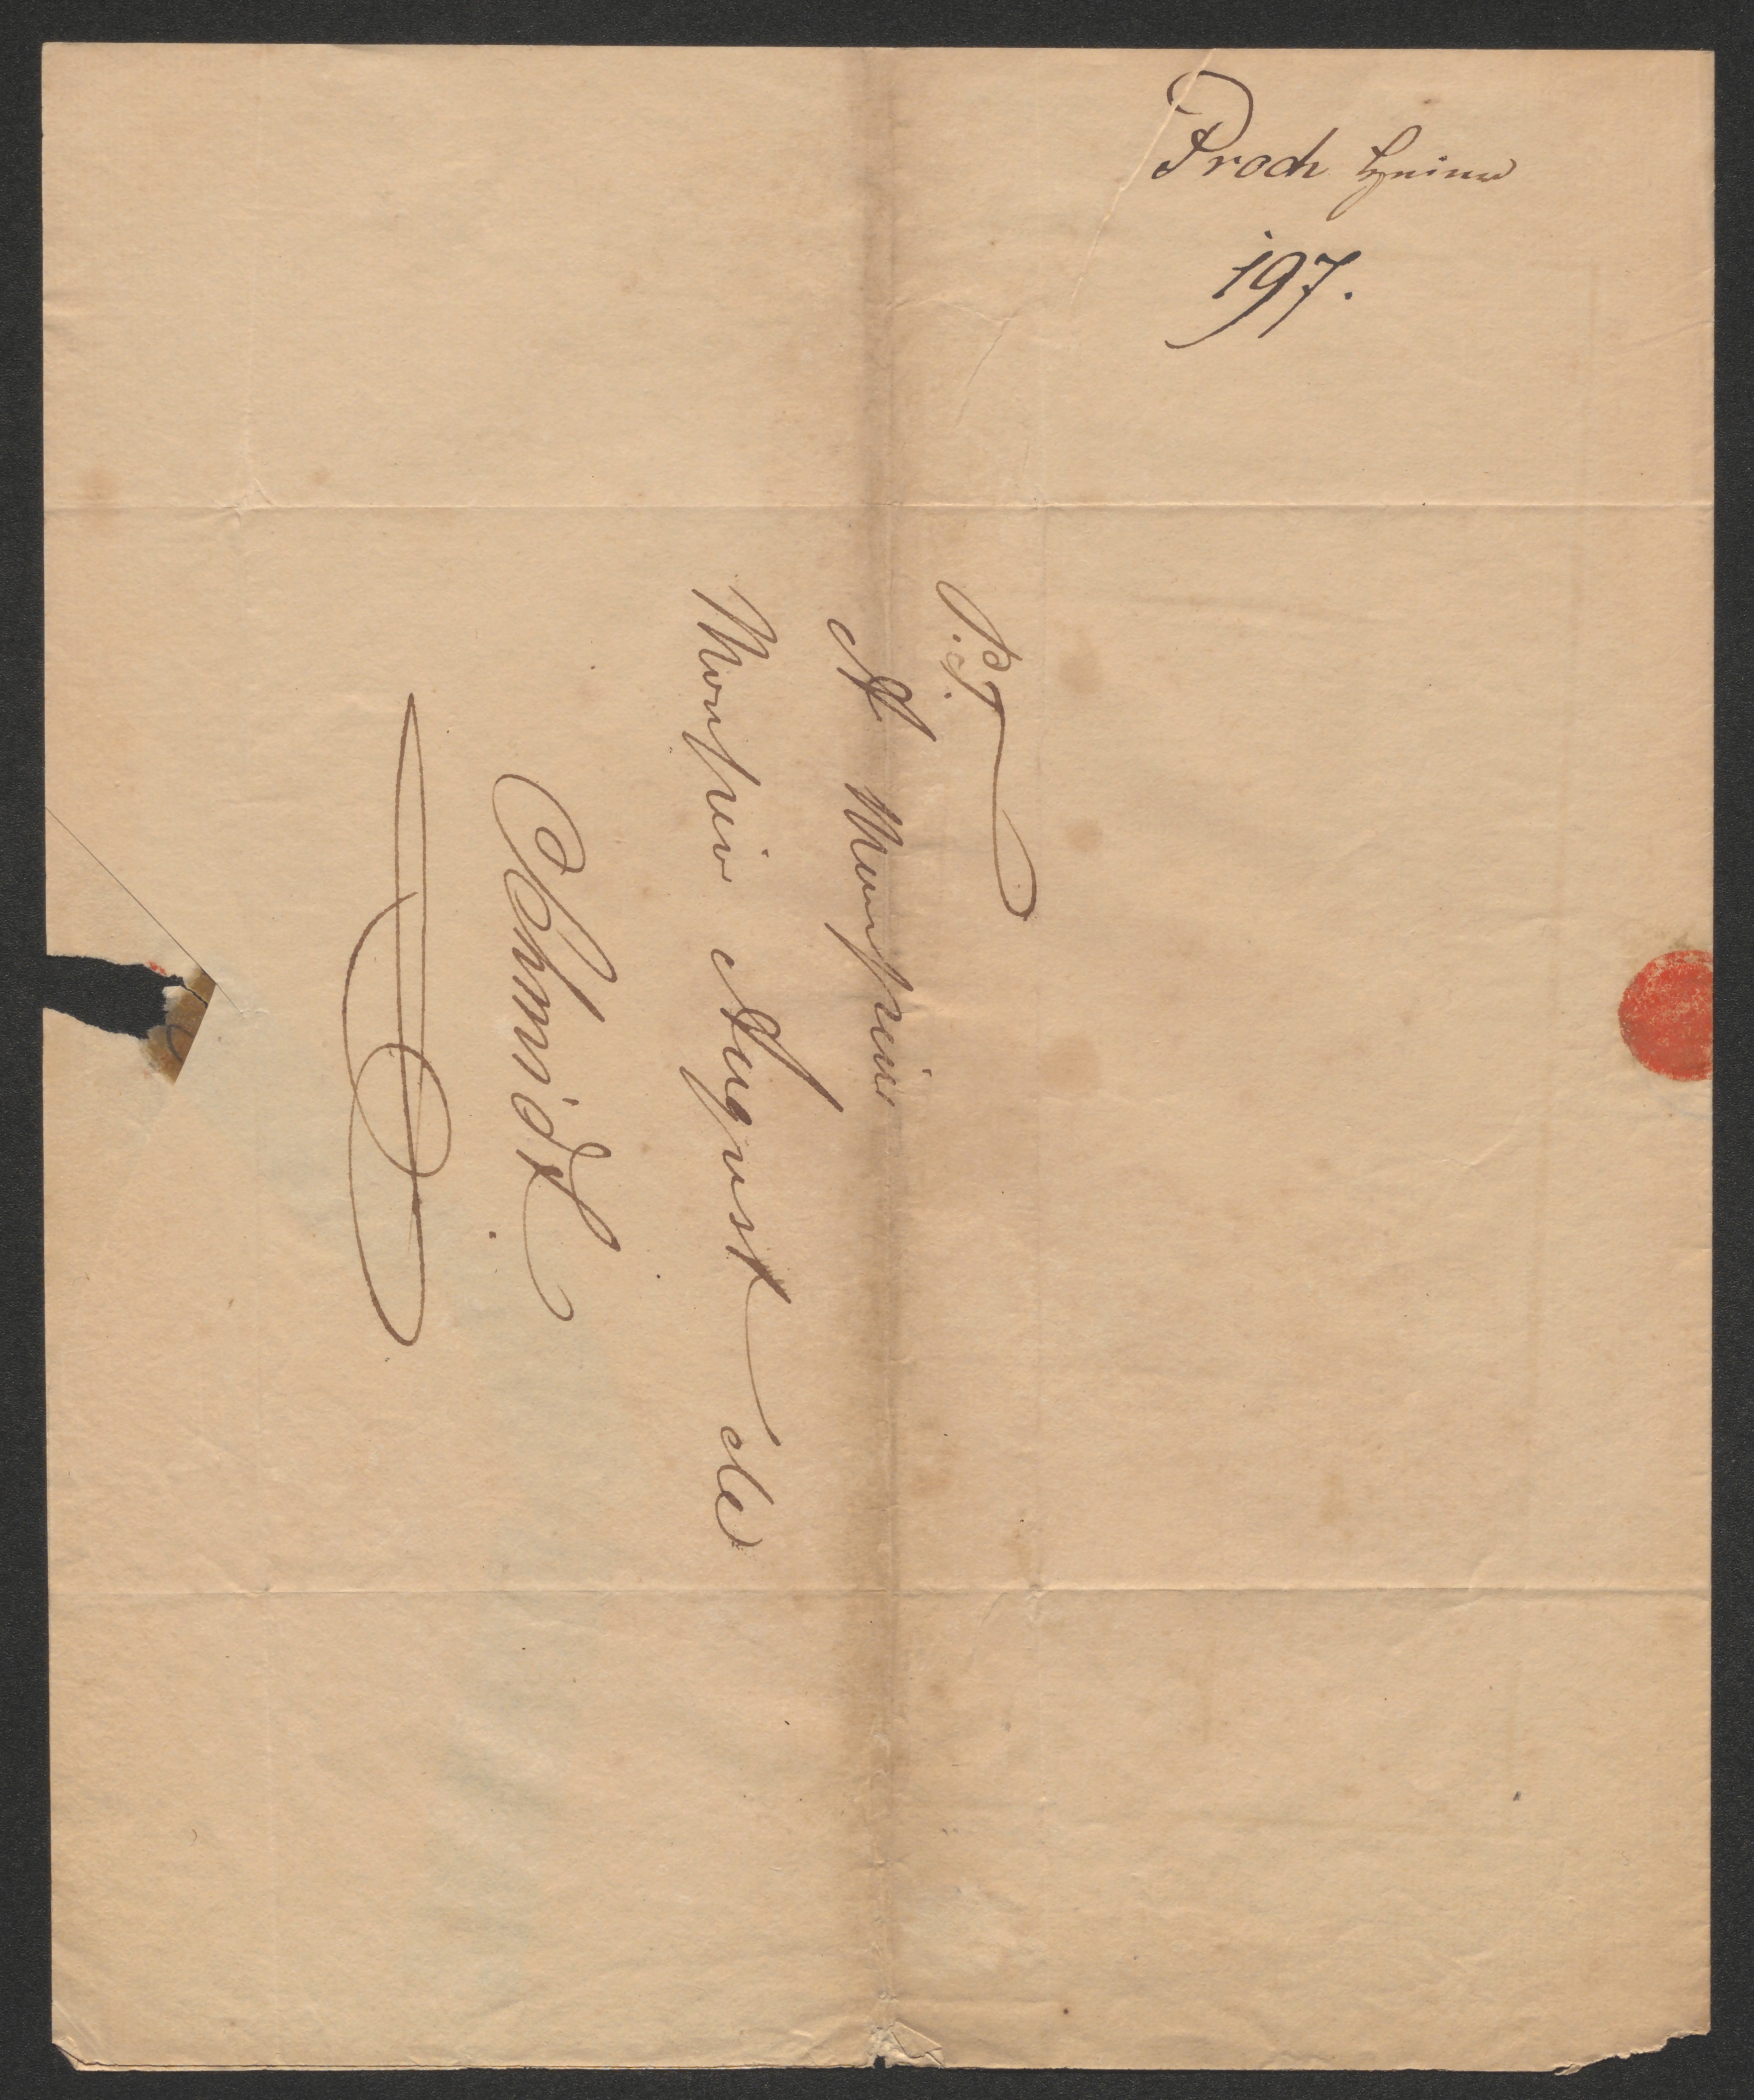 Proch Heinr
197.
P. T.
A Monsieur
Monsieur August de
Schmidt